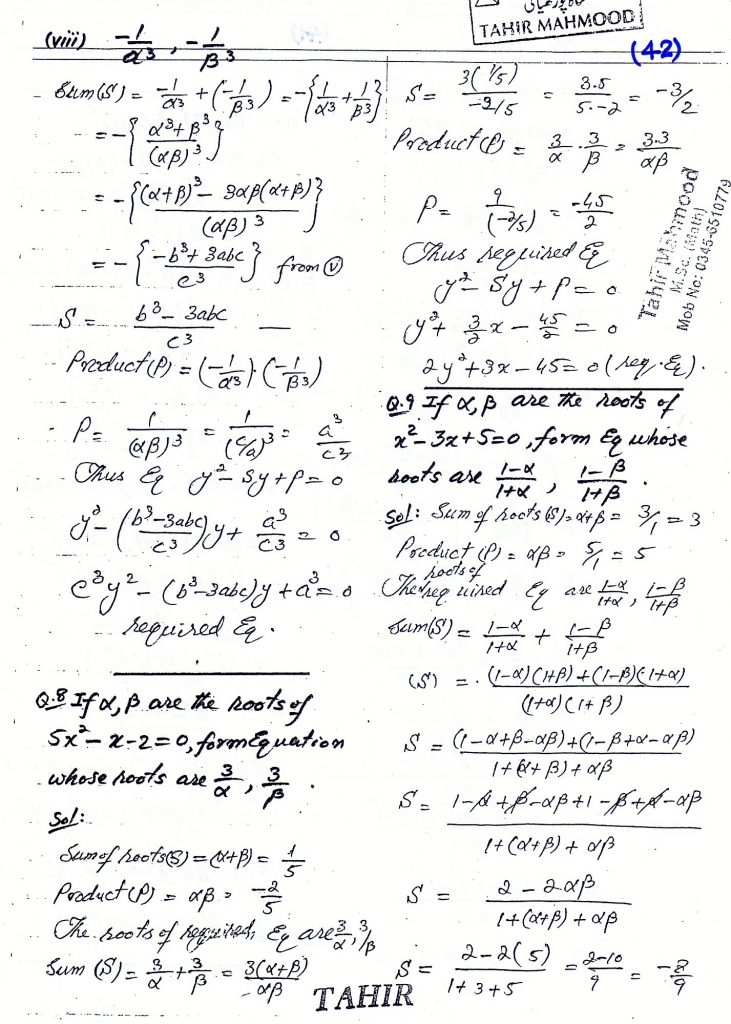 TAHIR MAHMOOD
(42)
(viii) -1/α³ , -1/β³
Sum(S) = -1/α³ + (-1/β³) = -{1/α³ + 1/β³}
= -{α³+β³/(αβ)³}
= -{(α+β)³ - 3αβ(α+β)/(αβ)³}
= -{-b³+3abc/c³} from (v)
S = b³-3abc/c³
Product(P) = (-1/α³).(-1/β³)
P = 1/(αβ)³ = 1/(c/a)³ = a³/c³
Thus Eq y²-Sy+P=0
y²-(b³-3abc/c³)y + a³/c³ = 0
c³y²-(b³-3abc)y+a³=0
required Eq.
Q.8 If α, β are the roots of
5x²-x-2=0, form Equation
whose roots are 3/α , 3/β .
Sol:
Sum of roots(S) = (α+β) = 1/5
Product(P) = αβ = -2/5
The roots of required Eq are 3/α, 3/β
Sum (S) = 3/α + 3/β = 3(α+β)/αβ
S = 3(1/5)/-2/5 = 3.5/5.-2 = -3/2
Product(P) = 3/α . 3/β = 3.3/αβ
P = 9/(-2/5) = -45/2
Thus required Eq
y²-Sy+P=0
y²+3/2 x - 45/2 = 0
2y²+3x-45=0 (req. Eq).
Tahir Mahmood
M.Sc. (Math)
Mob No: 0345-6510779
Q.9 If α, β are the roots of
x²-3x+5=0, form Eq whose
roots are 1-α/1+α , 1-β/1+β .
Sol: Sum of roots(S) = α+β = 3/1 = 3
Product (P) = αβ = 5/1 = 5
The roots of required Eq are 1-α/1+α , 1-β/1+β
Sum(S) = 1-α/1+α + 1-β/1+β
(S) = (1-α)(1+β)+(1-β)(1+α)/(1+α)(1+β)
S = (1-α+β-αβ)+(1-β+α-αβ)/1+(α+β)+αβ
S = 1-α+β-αβ+1-β+α-αβ/1+(α+β)+αβ
S = 2-2αβ/1+(α+β)+αβ
S = 2-2(5)/1+3+5 = 2-10/9 = -8/9
TAHIR